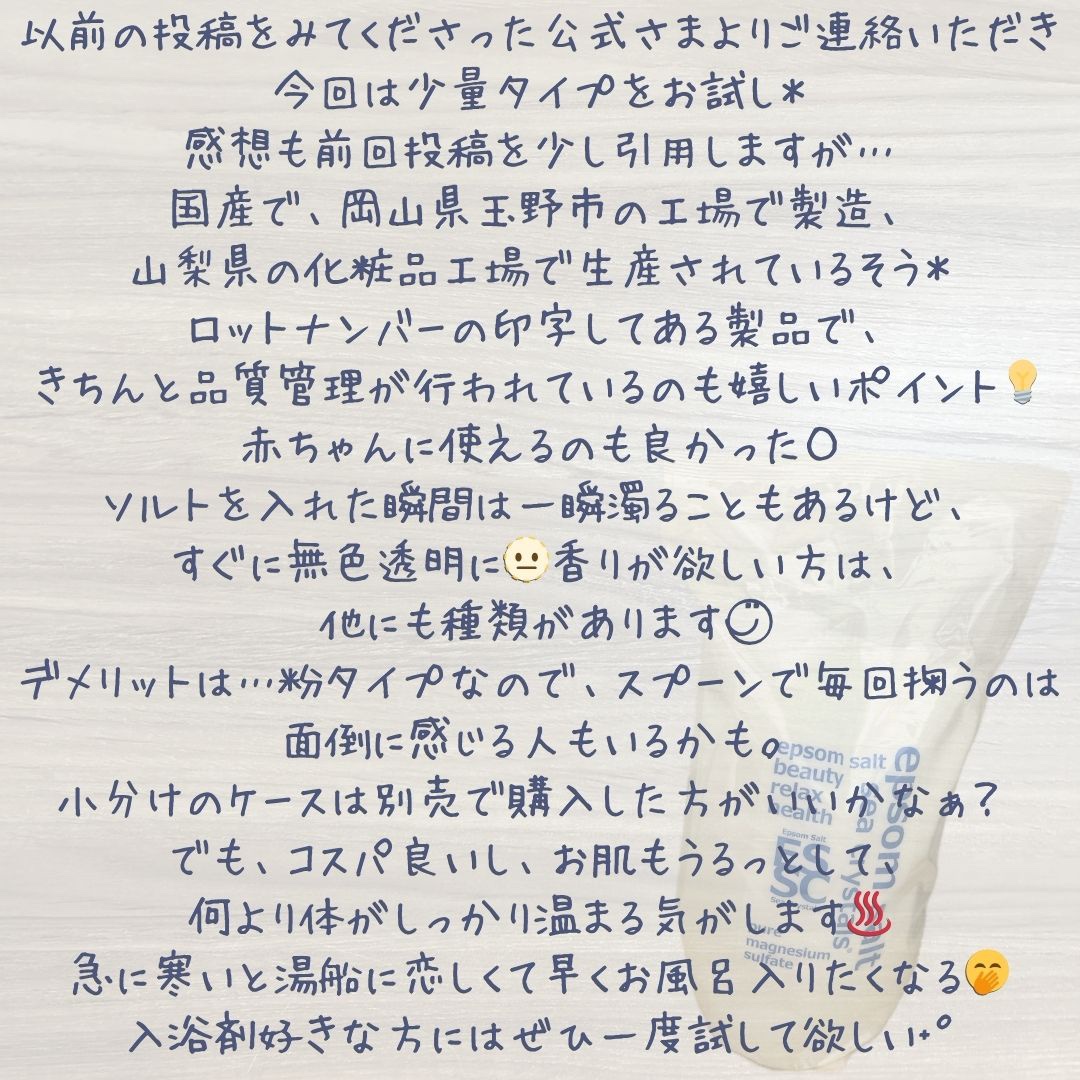 以前の投稿をみてくださった公式さまよりご連絡いただき
今回は少量タイプをお試し*
感想も前回投稿を少し引用しますが…
国産で、岡山県玉野市の工場で製造、
山梨県の化粧品工場で生産されているそう*
ロットナンバーの印字してある製品で、
きちんと品質管理が行われているのも嬉しいポイント💡
赤ちゃんに使えるのも良かった〇
ソルトを入れた瞬間は一瞬濁ることもあるけど、
すぐに無色透明に😐香りが欲しい方は、
他にも種類があります☺
デメリットは…粉タイプなので、スプーンで毎回掬うのは
面倒に感じる人もいるかも。
小分けのケースは別売で購入した方がいいかなぁ?
でも、コスパ良いし、お肌もうるっとして、
何より体がしっかり温まる気がします♨️
急に寒いと湯船に恋しくて早くお風呂入りたくなる🤭
入浴剤好きな方にはぜひ一度試して欲しい˖°
epsom salt
beauty
relax
health
Epsom Salt
ES
SC
Sea Crystals
pure
magnesium
sulfate
epsom salt
sea crystals®